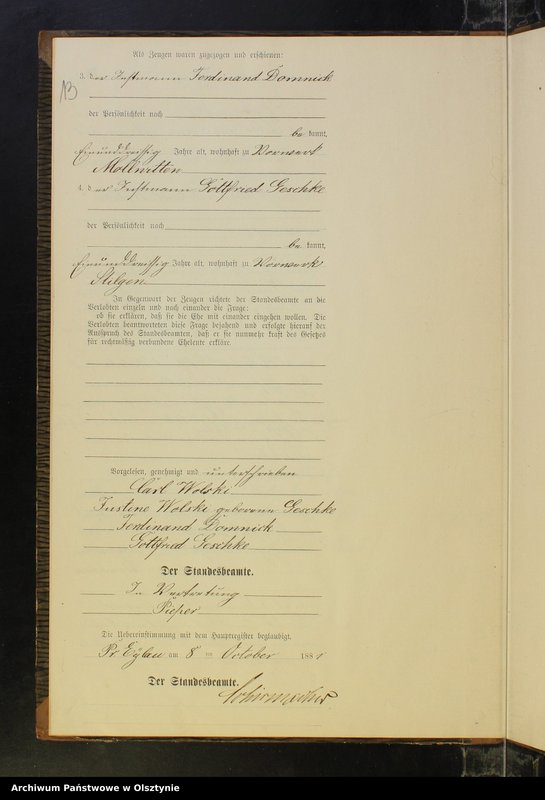 13
Als Zeugen waren zugezogen und erschienen:
3. der Instmann Ferdinand Domnick
der Persönlichkeit nach
be kannt,
Einunddreissig Jahre alt, wohnhaft zu Vorwerk
Mollwitten
4. der Instmann Gottfried Geschke
der Persönlichkeit nach
be kannt,
Einunddreissig Jahre alt, wohnhaft zu Vorwerk
Stilgen
In Gegenwart der Zeugen richtete der Standesbeamte an die
Verlobten einzeln und nach einander die Frage:
ob sie erklären, daß sie die Ehe mit einander eingehen wollen. Die
Verlobten beantworteten diese Frage bejahend und erfolgte hierauf der
Ausspruch des Standesbeamten, daß er sie nunmehr kraft des Gesetzes
für rechtmäßig verbundene Eheleute erkläre.
Vorgelesen, genehmigt und unterschrieben
Carl Wolski
Justine Wolski geborene Geschke
Ferdinand Domnick
Gottfried Geschke
Der Standesbeamte.
In Vertretung
Pieper
Die Uebereinstimmung mit dem Hauptregister beglaubigt.
Pr. Eylau am 8 ten October 1881
Der Standesbeamte.
Schirmacher
Archiwum Państwowe w Olsztynie